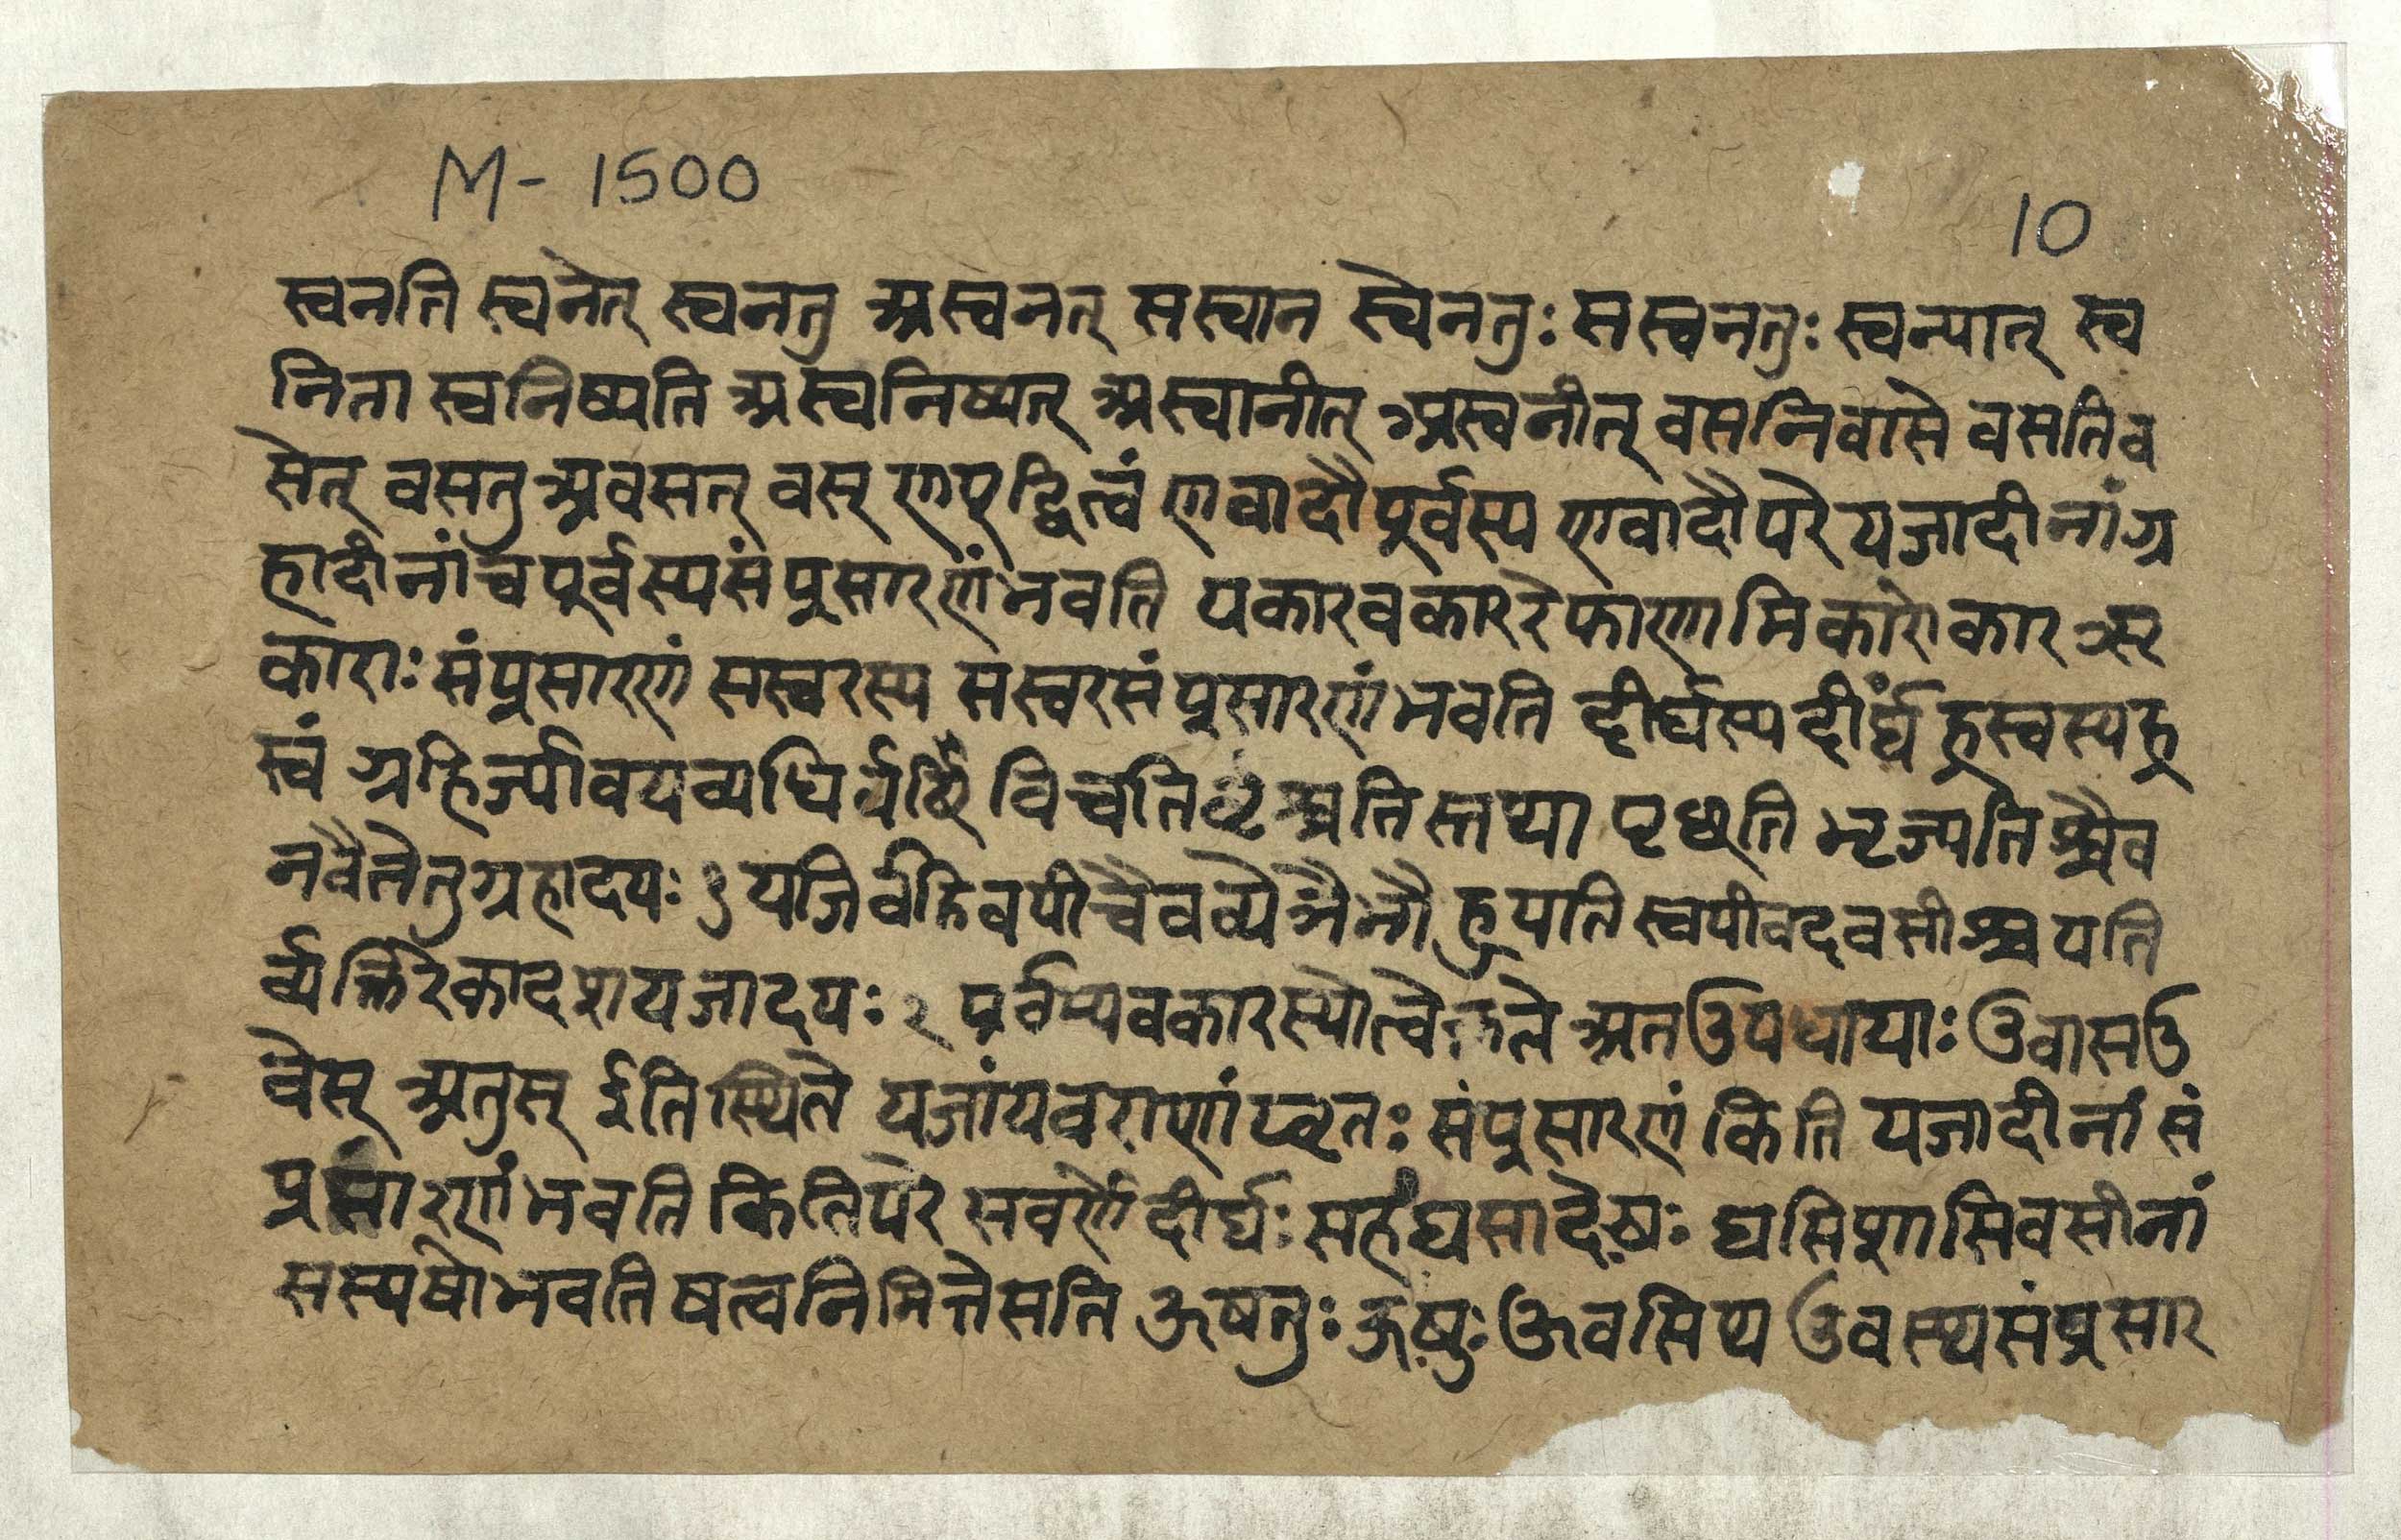 M - 1500
10
स्वनति स्वनेत् स्वनतु अस्वनत् सस्वान स्वेनतुः सस्वनतुः स्वन्यात् स्व
निता स्वनिष्यति अस्वनिष्यत् अस्वानीत् अस्वनीत् वस निवासे वसति व
सेत् वसतु अवसत् वस् णप् द्वित्वं णवादौ पूर्वस्य णवादौ परे यजादीनां ग्र
हादीनां च पूर्वस्य संप्रसारणं भवति यकारवकाररेफाणामिकारोकारऋ
काराः संप्रसारणं सस्वरस्य सस्वरसंप्रसारणं भवति दीर्घस्य दीर्घं ह्रस्वस्य ह्र
स्वं ग्रहिर्ज्यावयव्यधि विचतिवृश्चतिस्तथा पृछति भृज्यतिश्चैव
नवैतेतु ग्रहादयः १ यजिर्वहिवपीचैव ह्वयति स्वपीवदवसीश्वयति
रेकादशयजादयः २ पूर्वस्यवकारस्योत्वेकृते अतउपधायाः उवास उ
वेस् अतुस् इति स्थिते यजांयवराणांय्वृतः संप्रसारणं किति यजादीनां सं
प्रसारणं भवति किति परे सवर्णे दीर्घः सह घसादेःषः घसिशासिवसीनां
सस्य षो भवति षत्वनिमित्ते सति ऊषतुः ऊषुः ऊवसिथ उवस्थ संप्रसार